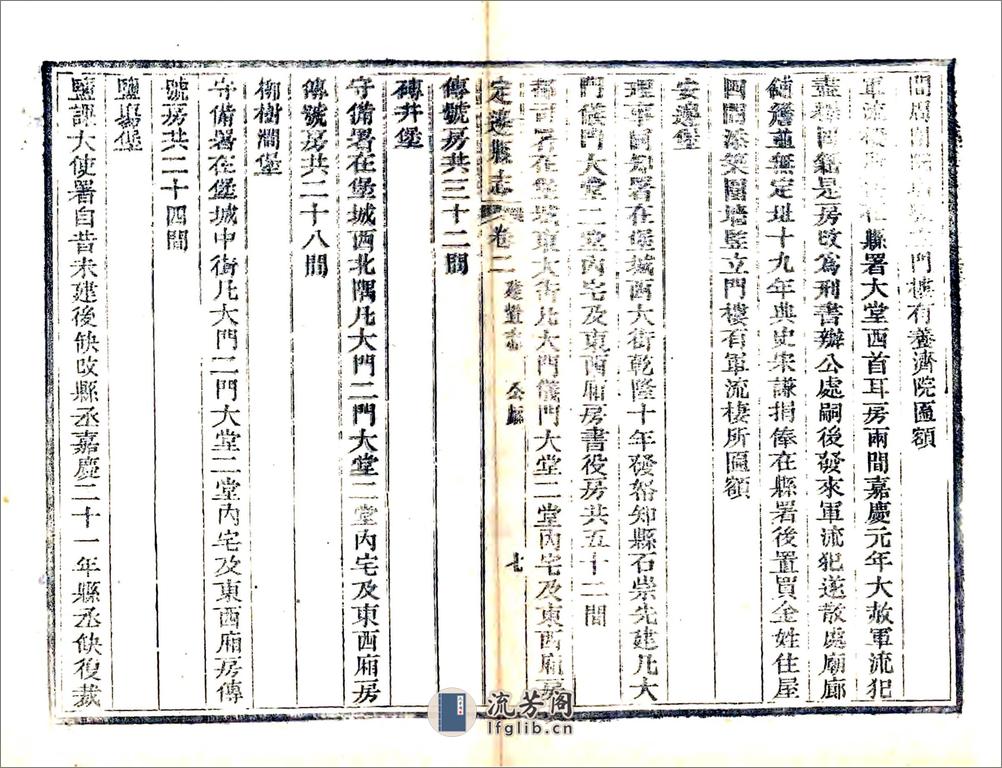 門樓有養濟院匾額
軍流 縣署大堂西首耳房兩間嘉慶元年大赦軍流犯
盡釋回籍是房改爲刑書辦公處嗣後發來軍流犯遂散處廟廊
舖舊並無定址十九年典史宋謙捐俸在縣署後置買金姓住屋
四間添築圍墻監立門樓有軍流棲所匾額
安邊堡
理事同知署在堡城西大街乾隆十年發帑知縣石崇先建凡大
門儀門大堂二堂內宅及東西廂房書役房共五十二間
都司署在堡城東大街凡大門儀門大堂二堂內宅及東西廂房
定邊縣志 卷二 建置志 公廨 七
傳號房共三十二間
磚井堡
守備署在堡城西北隅凡大門二門大堂二堂內宅及東西廂房
傳號房共二十八間
柳樹澗堡
守備署在堡城中街凡大門二門大堂二堂內宅及東西廂房傳
號房共二十四間
鹽場堡
鹽課大使署自昔未建後缺改縣丞嘉慶二十一年縣丞缺復裁
流芳阁
lfglib.cn